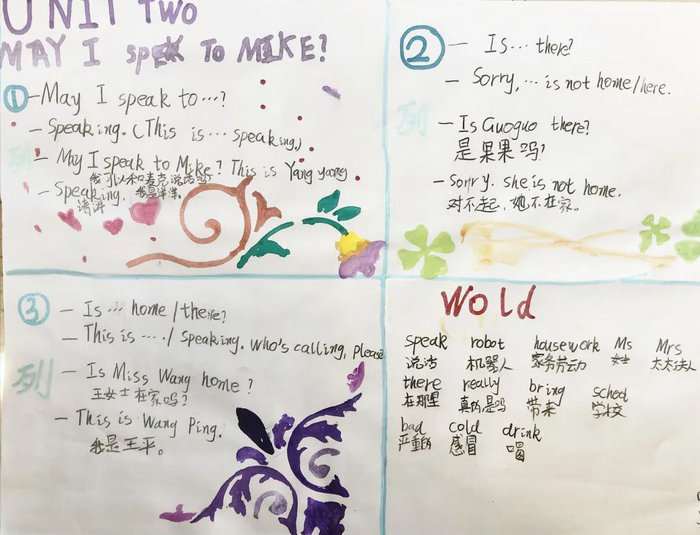 UNIT TWO
MAY I speak TO MIKE?
① — May I speak to ...?
— Speaking. (This is ... speaking.)
列 — May I speak to Mike? This is Yang yang
我可以和麦克说话吗? 我是洋洋。
— Speaking.
请讲
② — Is ... there?
— Sorry, ... is not home/here.
列 — Is Guoguo there?
是果果吗?
— Sorry. she is not home.
对不起,她不在家。
③ — Is ... home/there?
— This is ..../ speaking. who's calling, please
列 — Is Miss Wang home?
王女士在家吗?
— This is Wang Ping.
我是王平。
Wold
speak robot housework Ms Mrs
说话 机器人 家务劳动 女士 太太夫人
there really bring school
在那里 真的是吗 带来 学校
bad cold drink
严重的 感冒 喝